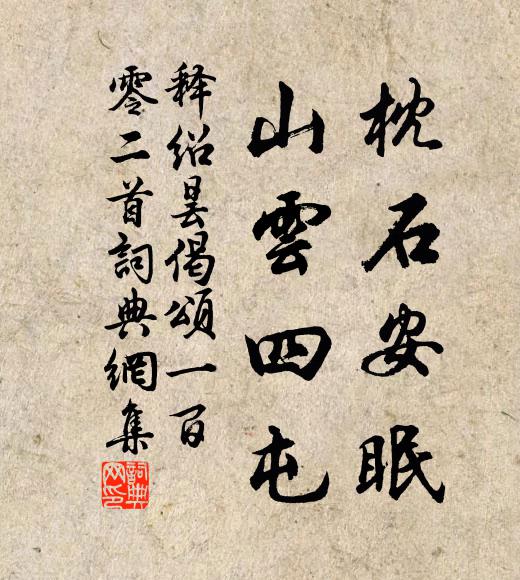 枕石安眠
山雲四屯
释绍昙偈颂一百
零二首詞典網集
詞典网印